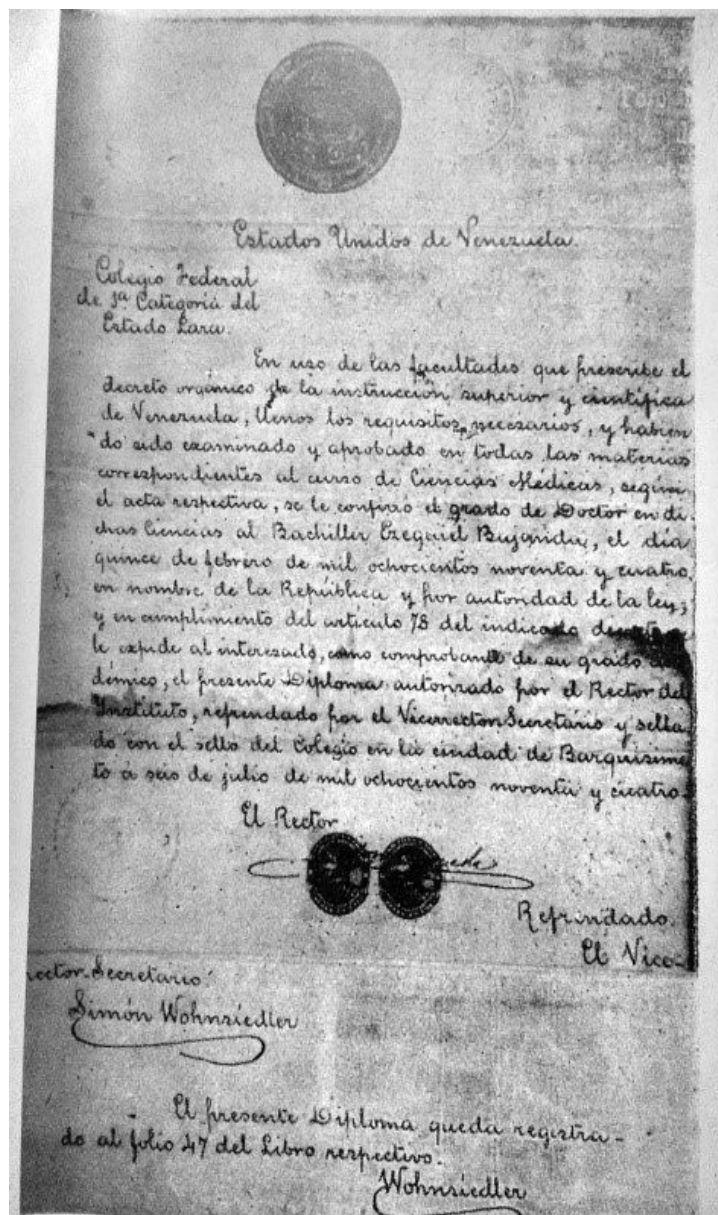 Estados Unidos de Venezuela.
Colegio Federal
de 1ª Categoría del
Estado Lara.
En uso de las facultades que prescribe el
decreto orgánico de la instrucción superior y científica
de Venezuela, llenos los requisitos necesarios, y habien
do sido examinado y aprobado en todas las materias
correspondientes al curso de Ciencias Médicas, según
el acta respectiva, se le confirió el grado de Doctor en di-
chas Ciencias al Bachiller Ezequiel Bujanda, el día
quince de febrero de mil ochocientos noventa y cuatro,
en nombre de la República y por autoridad de la ley;
y en cumplimiento del artículo 78 del indicado
le expide al interesado, como comprobante de su grado
démico, el presente Diploma autorizado por el Rector del
Instituto, refrendado por el Vicerrector Secretario y sella
do con el sello del Colegio en la ciudad de Barquisime
to á seis de julio de mil ochocientos noventa y cuatro.
El Rector
Refrindado.
El Vice-
rector-Secretario.
Simón Wohnsiedler
El presente Diploma queda registra-
do al folio 47 del Libro respectivo.
Wohnsiedler